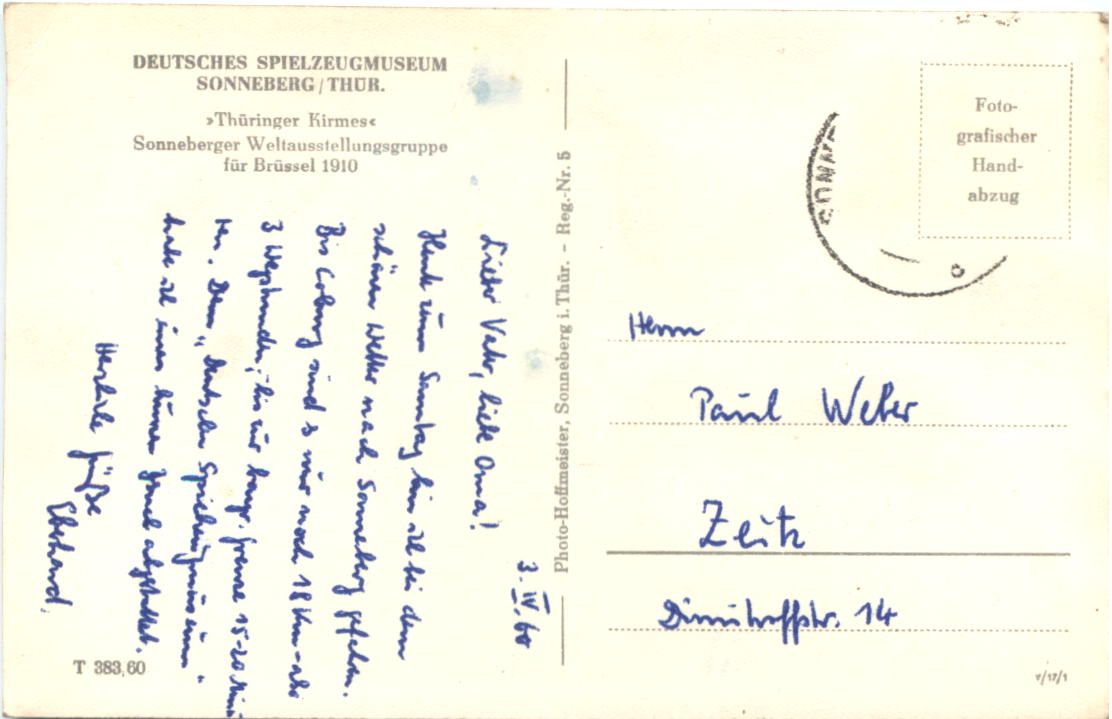 DEUTSCHES SPIELZEUGMUSEUM
SONNEBERG/THÜR.
»Thüringer Kirmes«
Sonneberger Weltausstellungsgruppe
für Brüssel 1910
3. IV. 60
Lieber Vater, liebe Oma!
Heute zum Sonntag bin ich bei dem
schönen Wetter nach Sonneberg gefahren.
Bis Coburg sind's nur noch 18 km - also
3 Wegstunden, bis zur bayr. Grenze 15-20 Minu-
ten. Dem "Deutschen Spielzeugmuseum"
habe ich einen kurzen Besuch abgestattet.
Herzliche Grüße
Eberhard.
T 383,60
Photo-Hoffmeister, Sonneberg i. Thür. - Reg.-Nr. 5
Foto-
grafischer
Hand-
abzug
SONNE
Herrn
Paul Weber
Zeitz
Dimitroffstr. 14
V/17/1